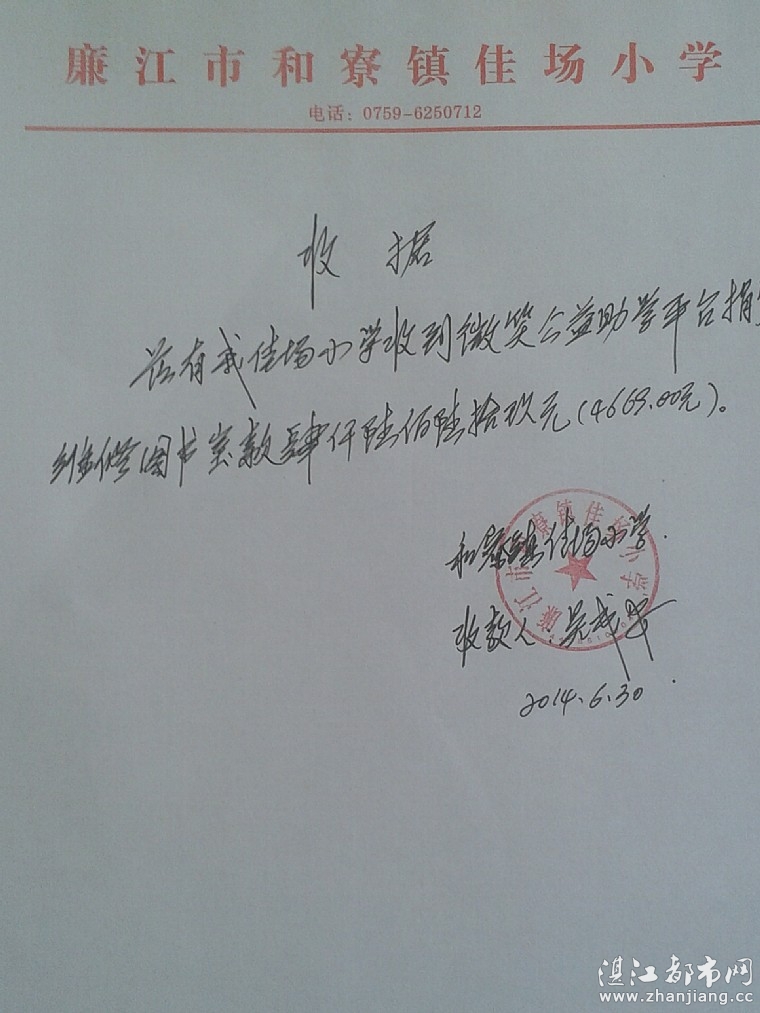 廉江市和寮镇佳场小学
电话：0759-6250712
收据
兹有我佳场小学收到微笑公益助学平台捐
维修图书室款肆仟陆佰陆拾玖元（4669.00元）。
和寮镇佳场小学
收款人：吴成
2014.6.30
廉江市和寮镇佳场小学
湛江都市网
www.zhanjiang.cc